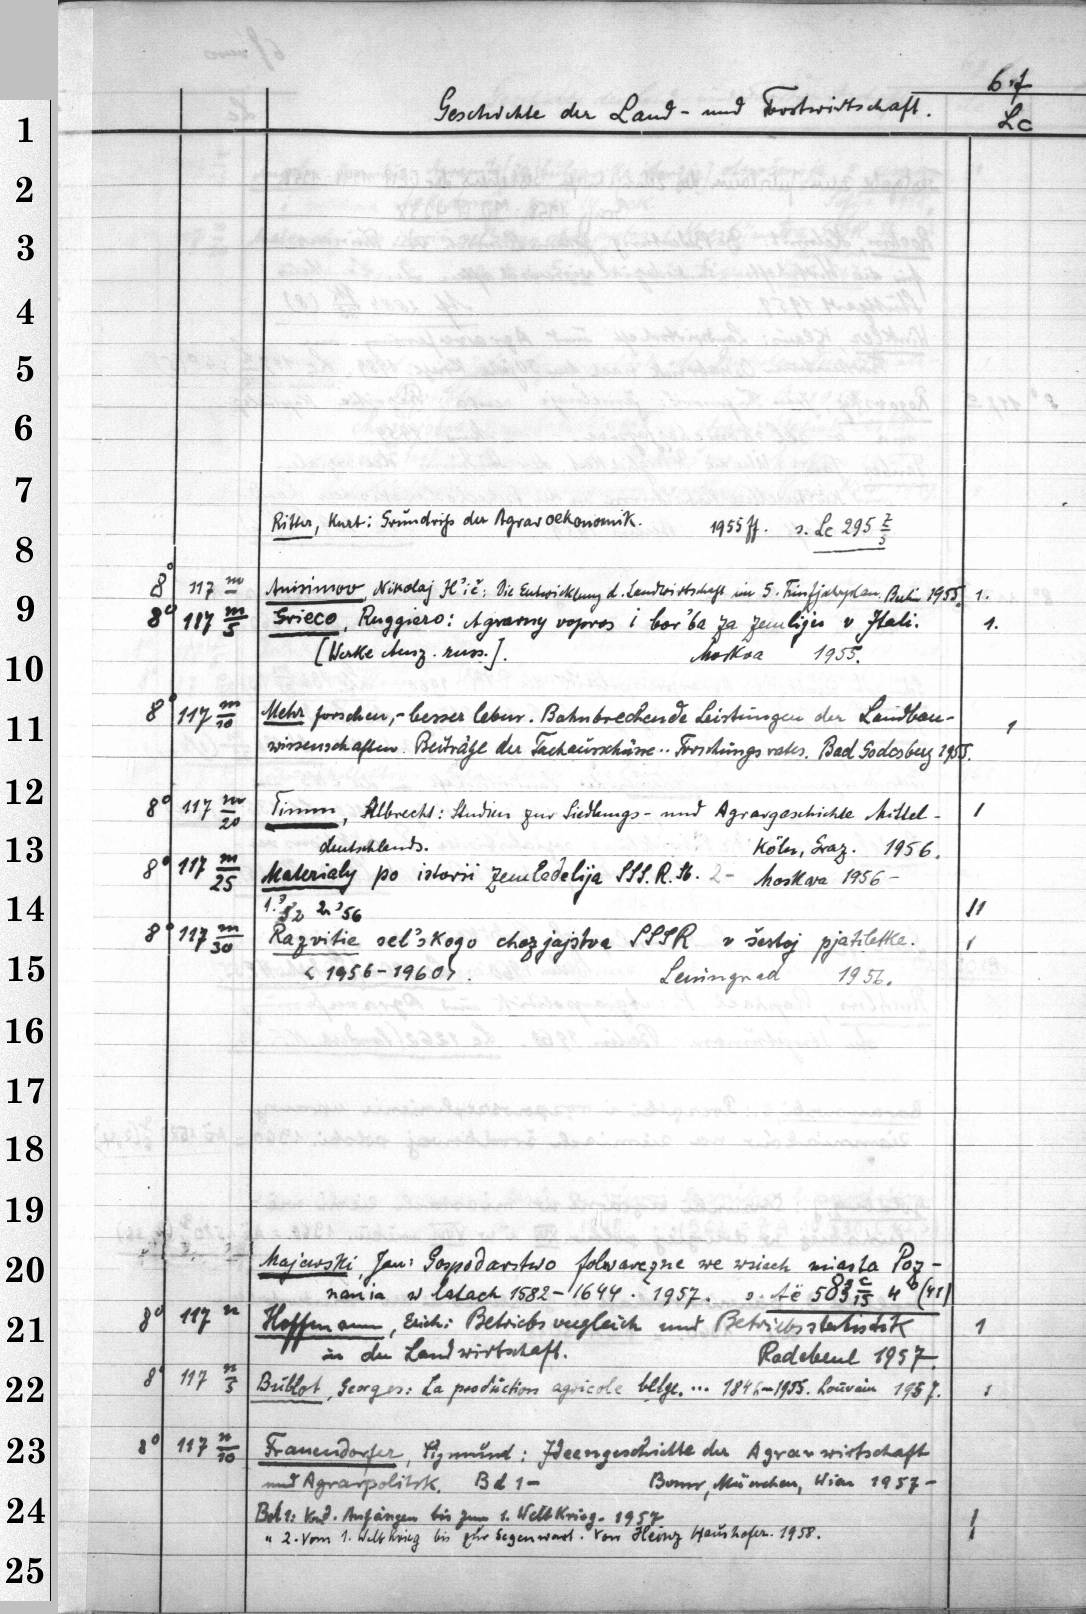 67
Geschichte der Land- und Forstwirtschaft. Lc
1
2
3
4
5
6
7
Ritter, Kurt: Grundriß der Agraroekonomik. 1955 ff. s. Lc 295 z/5
8
8° 117 m Anisimov, Nikolaj Il'ič: Die Entwicklung d. Landwirtschaft im 5. Fünfjahrplan. Berlin 1955. 1.
9
8° 117 m/5 Grieco, Ruggiero: Agrarny vopros i bor'ba za zemliju v Itali. 1.
[Werke Ausz. russ.]. Moskva 1955.
10
8° 117 m/10 Mehr forschen, - besser leben. Bahnbrechende Leistungen der Landbau- 1
11
wissenschaften. Beiträge der Fachausschüsse .. Forschungsrates. Bad Godesberg 1955.
12
8° 117 m/20 Timm, Albrecht: Studien zur Siedlungs- und Agrargeschichte Mittel- 1
deutschlands. Köln, Graz. 1956.
13
8° 117 m/25 Materialy po istorii zemledelija SSS.R. Sb. 2- Moskva 1956-
1. 52 2. 56 11
14
8° 117 m/30 Razvitie sel'skogo chozjajstva SSSR v šestoj pjatiletke. 1
15
< 1956-1960>. Leningrad 1956.
16
17
18
19
Majewski, Jan: Gospodarstwo folwarczne we wsiach miasta Poz-
20
nania w latach 1582-1644. 1957. s. Aë 503 c/15 4° (41)
21
8° 117 n Hoffmann, Erich: Betriebsvergleich und Betriebsstatistik 1
in der Landwirtschaft. Radebeul 1957.
22
8° 117 n/5 Bublot, Georges: La production agricole belge. ... 1846-1955. Louvain 1957. 1
23
8° 117 n/10 Frauendorfer, Sigmund: Ideengeschichte der Agrarwirtschaft
und Agrarpolitik. Bd 1- Bonn, München, Wien 1957-
24
Bd 1: Von d. Anfängen bis zum 1. Weltkrieg. 1957 1
" 2. Vom 1. Weltkrieg bis zur Gegenwart. Von Heinz Haushofer. 1958. 1
25